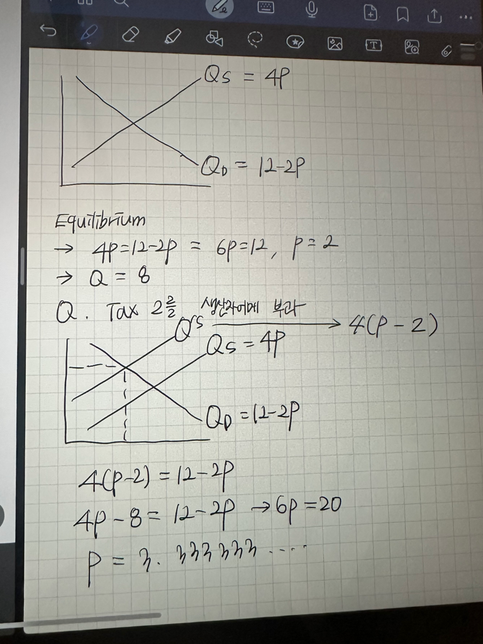 Qs = 4P
QD = 12-2P
Equilibrium
→ 4P=12-2P = 6P=12, P=2
→ Q = 8
Q. Tax 2를 생산자에게 부과
Q's → 4(P-2)
Qs = 4P
QD = 12-2P
4(P-2) = 12-2P
4P-8 = 12-2P → 6P=20
P = 3.333333....